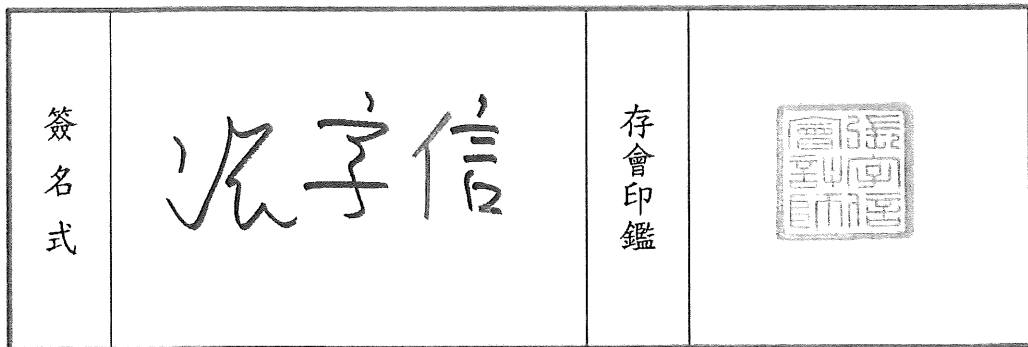 簽名式
張字信
存會印鑑
張字信
會計師